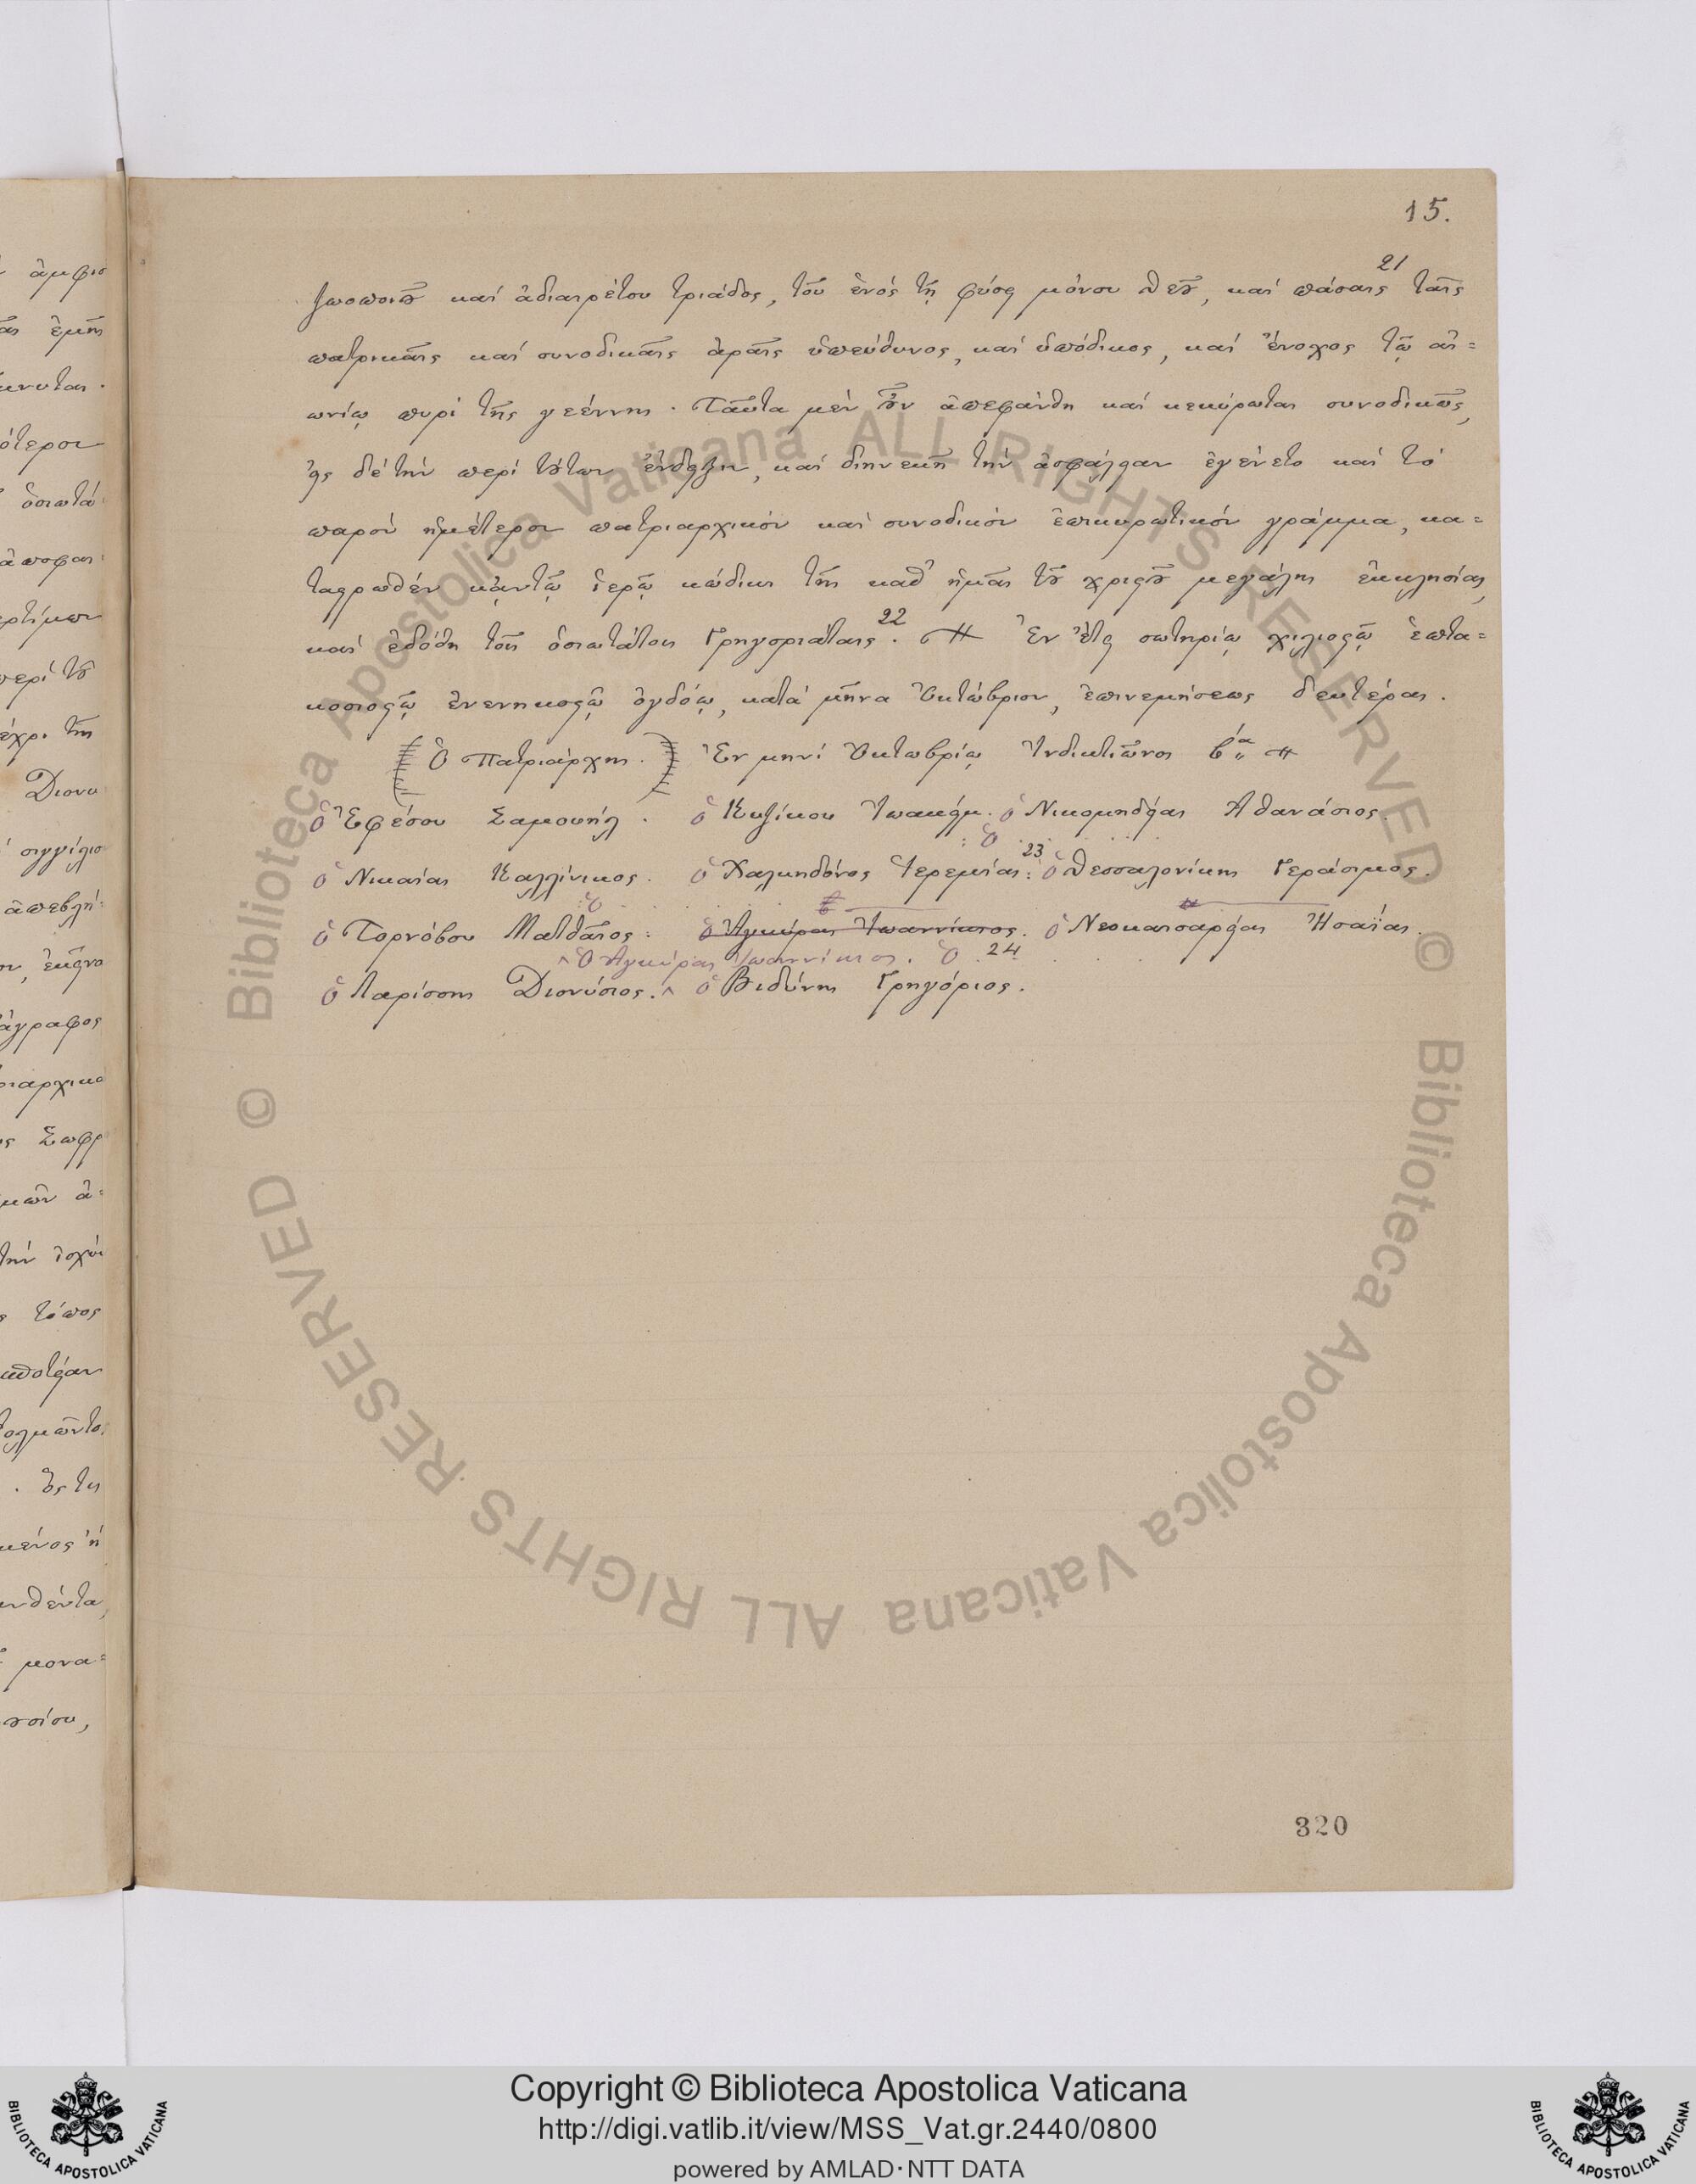 15.
ζωοποιοῦ καὶ ἀδιαιρέτου τριάδος, τοῦ ἑνός τῇ φύσει μόνου θεοῦ, καὶ πάσαις 21 ταῖς
πατρικαῖς καὶ συνοδικαῖς ἀραῖς ὑπεύθυνος, καὶ ὑπόδικος, καὶ ἔνοχος τῷ αἰ=
ωνίῳ πυρὶ τῆς γεέννης. Ταῦτα μέν οὖν ἀπεφάνθη καὶ κεκύρωται συνοδικῶς,
εἰς δέ τήν περί τούτων ἔνδειξιν, καί διηνεκῆ τήν ἀσφάλειαν ἐγένετο καί τό
παρόν ἡμέτερον πατριαρχικόν καί συνοδικόν ἐπικυρωτικόν γράμμα, κα=
ταστρωθέν κἀντῷ ἱερῷ κώδικι τῆς καθ' ἡμᾶς τοῦ χριστοῦ μεγάλης ἐκκλησίας,
καί ἐδόθη τοῖς ὁσιωτάτοις Γρηγοριάταις 22. Ἐν ἔτει σωτηρίῳ χιλιοστῷ ἑπτα=
κοσιοστῷ ἐνενηκοστῷ ὀγδόῳ, κατά μῆνα Ὀκτώβριον, ἐπινεμήσεως δευτέρας.
(Ὁ Πατριάρχης.) Ἐν μηνί Ὀκτωβρίῳ Ἰνδικτιῶνος β΄ας
ὁ Ἐφέσου Σαμουήλ. ὁ Κυζίκου Ἰωακείμ. ὁ Νικομηδείας Ἀθανάσιος.
ὁ Νικαίας Καλλίνικος. ὁ Χαλκηδόνος Ἱερεμίας: 23 ὁ Θεσσαλονίκης Γεράσιμος.
ὁ Τορνόβου Ματθαῖος: ὁ Ἀγκύρας Ἰωαννίκιος. ὁ Νεοκαισαρείας Ἡσαΐας.
^ Ὁ Ἀγκύρας Ἰωαννίκιος. Ὁ 24
ὁ Λαρίσσης Διονύσιος. ^ ὁ Βιδύνης Γρηγόριος.
320
© Biblioteca Apostolica Vaticana ALL RIGHTS RESERVED
© Biblioteca Apostolica Vaticana ALL RIGHTS RESERVED
Copyright © Biblioteca Apostolica Vaticana
http://digi.vatlib.it/view/MSS_Vat.gr.2440/0800
powered by AMLAD·NTT DATA
BIBLIOTECA APOSTOLICA VATICANA
BIBLIOTECA APOSTOLICA VATICANA